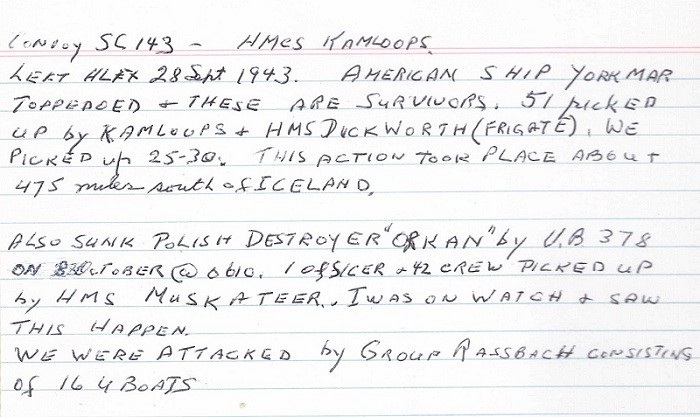 CONVOY SC 143 - HMCS KAMLOOPS.
LEFT HLFX 28 Sept 1943. AMERICAN SHIP YORKMAR
TOPPEDOED + THESE ARE SURVIVORS. 51 picked
up by KAMLOOPS + HMS DUCKWORTH (FRIGATE). WE
PICKED up 25-30. THIS ACTION TOOK PLACE ABOUT
475 miles south of ICELAND.
ALSO SUNK POLISH DESTROYER "ORKAN" by U.B 378
ON 8 OCTOBER @ 0610. 1 OFFICER + 42 CREW PICKED UP
by HMS MUSKATEER. I WAS ON WATCH + SAW
THIS HAPPEN.
WE WERE ATTACKED by GROUP RASSBACH CONSISTING
of 16 U BOATS